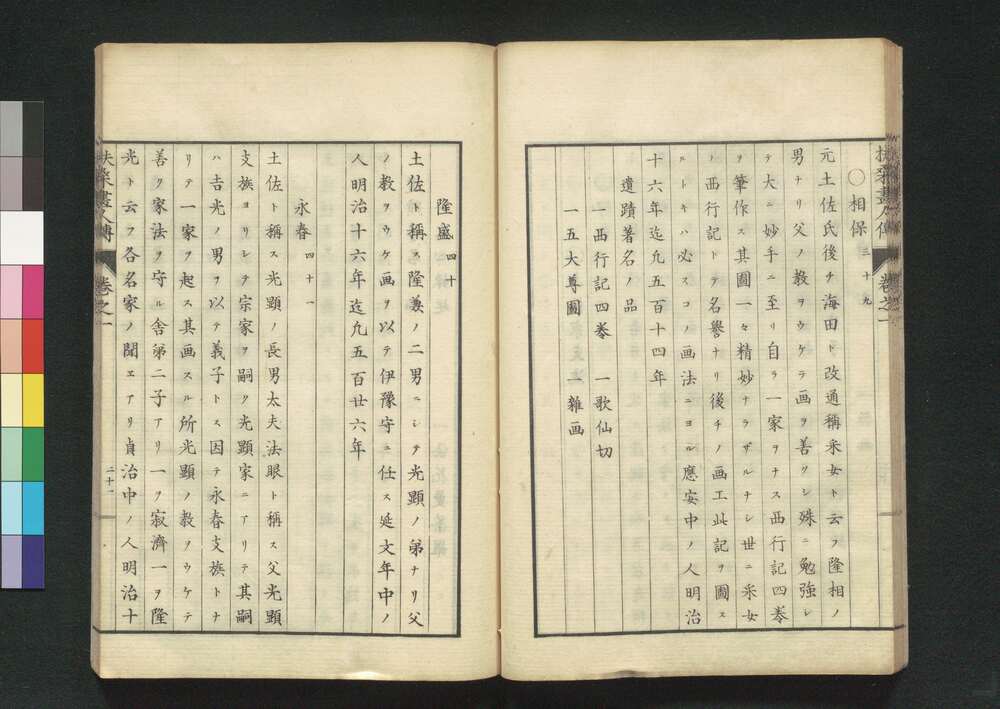 扶桑畫人傳 巻之一
〇相保 三十九
元土佐氏後チ海田ト改通稱采女ト云フ隆相ノ
男ナリ父ノ教ヲウケテ画ヲ善クシ殊ニ勉強シ
テ大ニ妙手ニ至リ自ラ一家ヲナス西行記四巻
ヲ筆作ス其圖一々精妙ナラザルナシ世ニ采女
ノ西行記トテ名譽ナリ後チノ画工此記ヲ圖ス
ルトキハ必スコノ画法ニヨル應安中ノ人明治
十六年迄凡五百十四年
遺蹟著名ノ品
一西行記四巻 一歌仙切
一五大尊圖 一雜画
隆盛 四十
土佐ト稱ス隆兼ノ二男ニシテ光顕ノ弟ナリ父
ノ教ヲウケ画ヲ以テ伊豫守ニ任ス延文年中ノ
人明治十六年迄凡五百廿六年
永春 四十一
土佐ト稱ス光顕ノ長男太夫法眼ト稱ス父光顕
支族ヨリシテ宗家ヲ嗣ク光顕家ニアリテ其嗣
ハ吉光ノ男ヲ以テ義子トス因テ永春支族トナ
リテ一家ヲ起ス其画スル所光顕ノ教ヲウケテ
善ク家法ヲ守ル舎弟二子アリ一ヲ寂濟一ヲ隆
光ト云フ各名家ノ聞エアリ貞治中ノ人明治十
扶桑畫人傳 巻之一 二十一